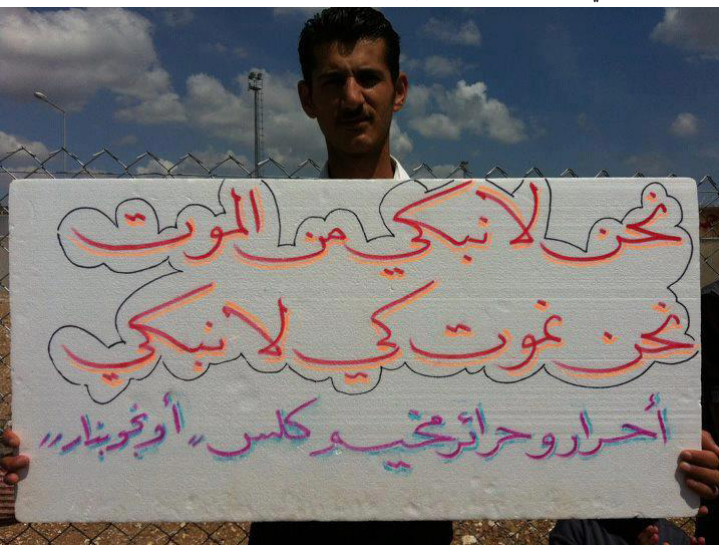 نحن لا نبكي من الموت
نحن نموت كي لا نبكي
أحرار وحرائر مخيم كلس ,, أونجوبنار ,,